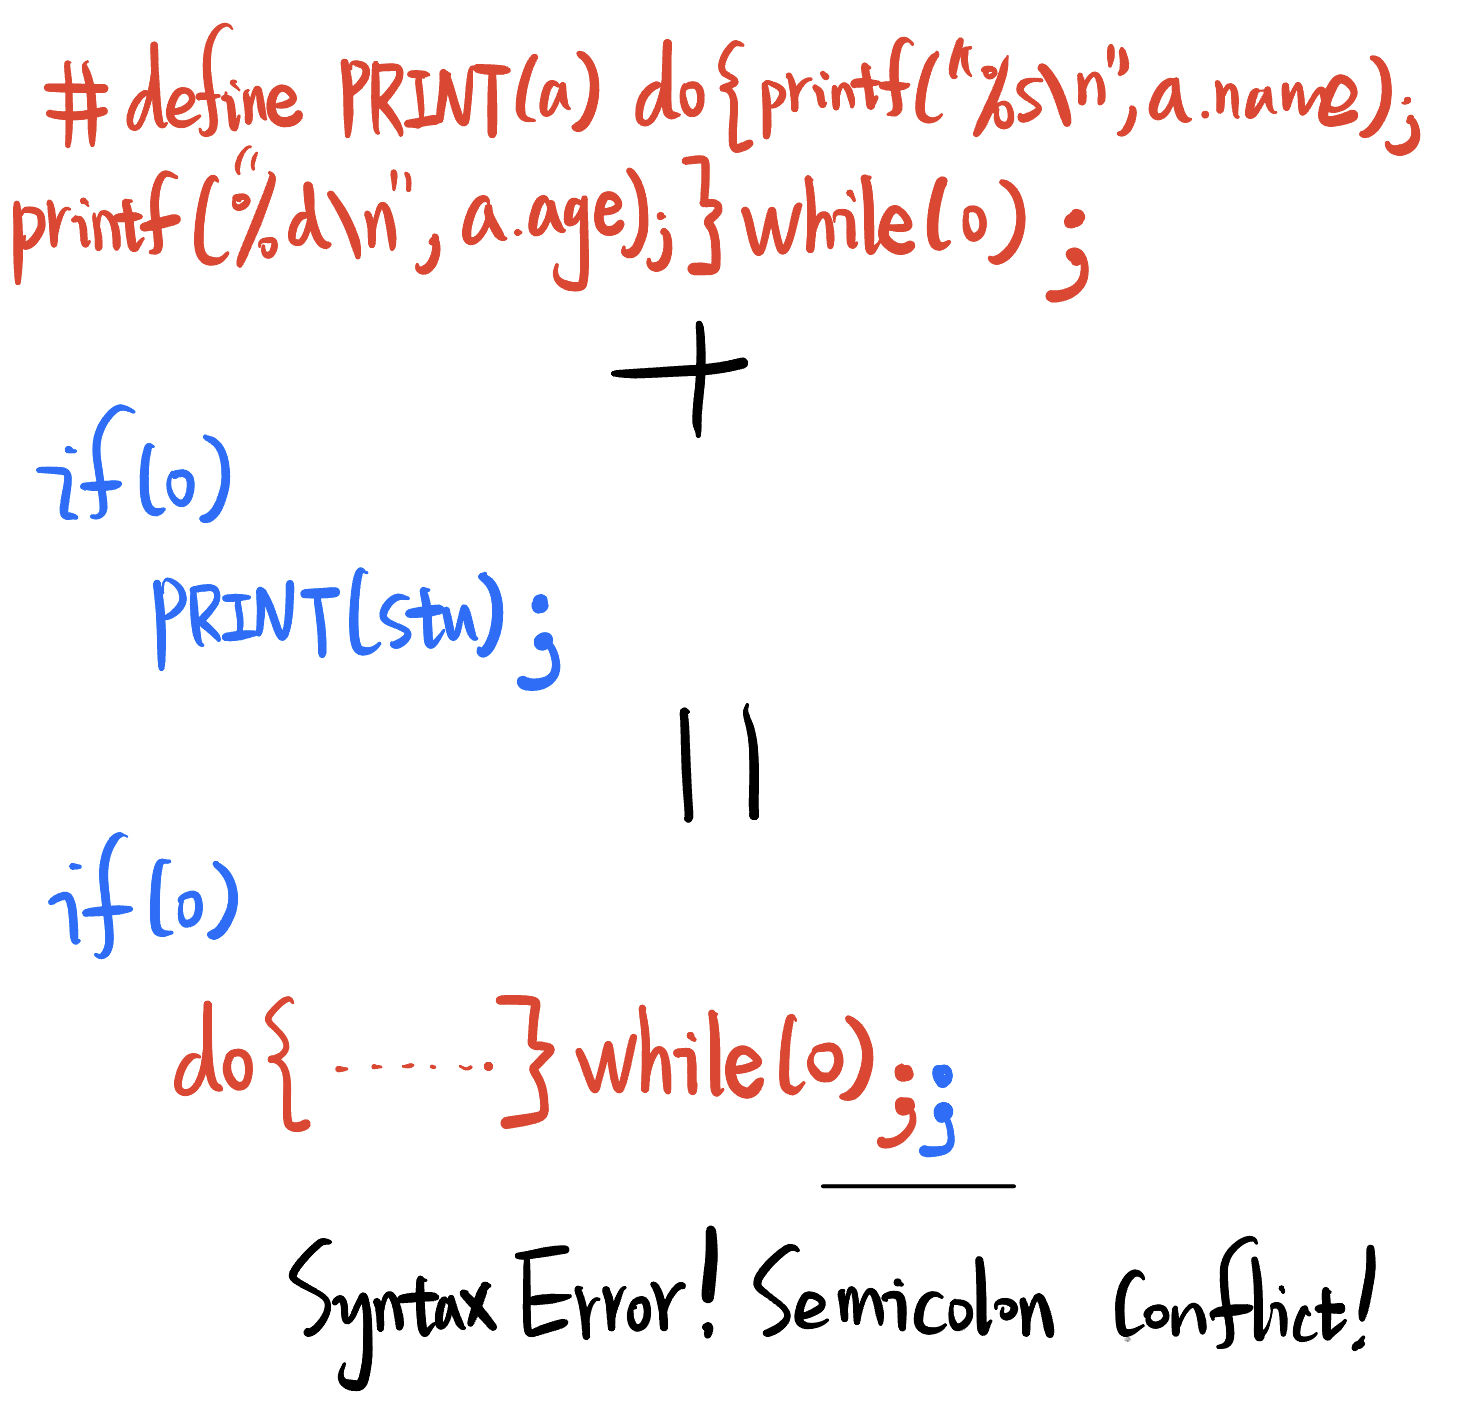 # define PRINT(a) do{printf("%s\n",a.name);
printf("%d\n", a.age);}while(0);
+
if(0)
PRINT(stu);
||
if(0)
do{.......}while(0);;
Syntax Error! Semicolon Conflict!